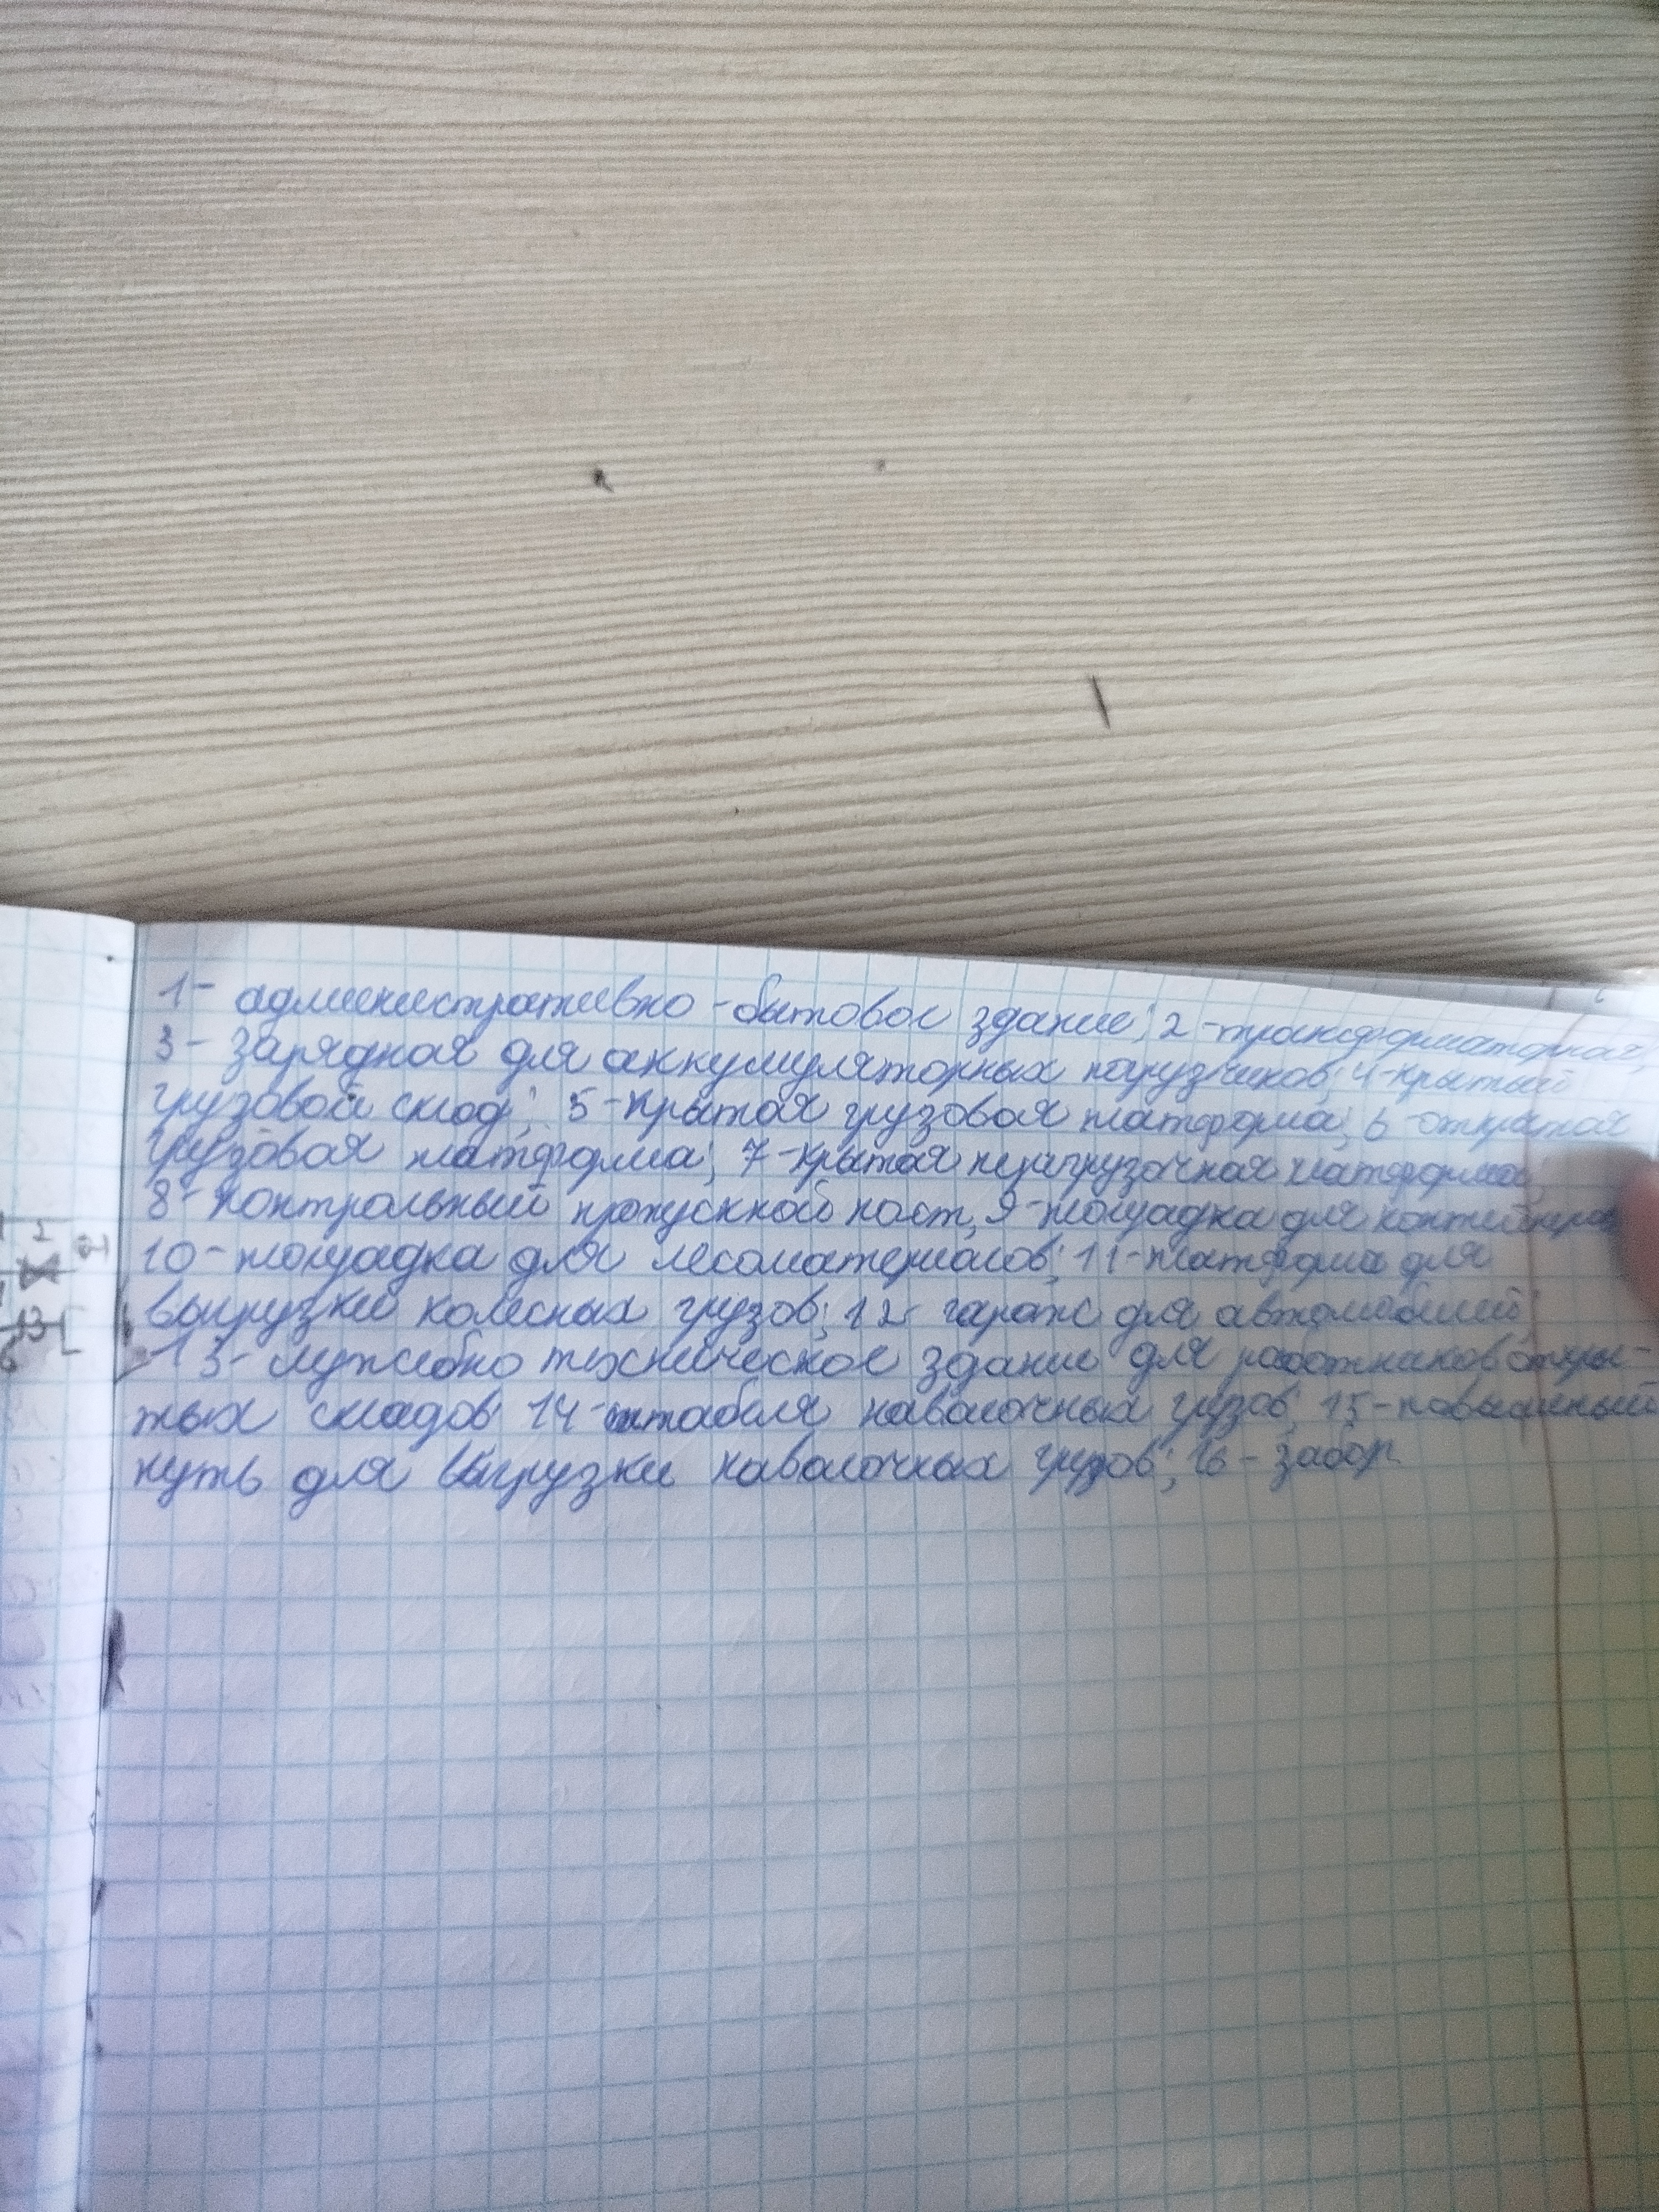 1- административно-бытовое здание; 2-трансформаторная;
3- зарядная для аккумуляторных погрузчиков; 4-крытый
грузовой склад; 5-крытая грузовая платформа; 6-открытая
грузовая платформа; 7-крытая платформа;
8- контрольный пропускной пост, 9-площадка для контейнеров
10-площадка для лесоматериалов; 11-платформа для
выгрузки колесных грузов; 12- гараж для автомобилей;
13- служебно техническое здание для работников откры-
тых складов 14-штабеля навалочных грузов; 15-повышенный
путь для выгрузки навалочных грузов; 16- забор